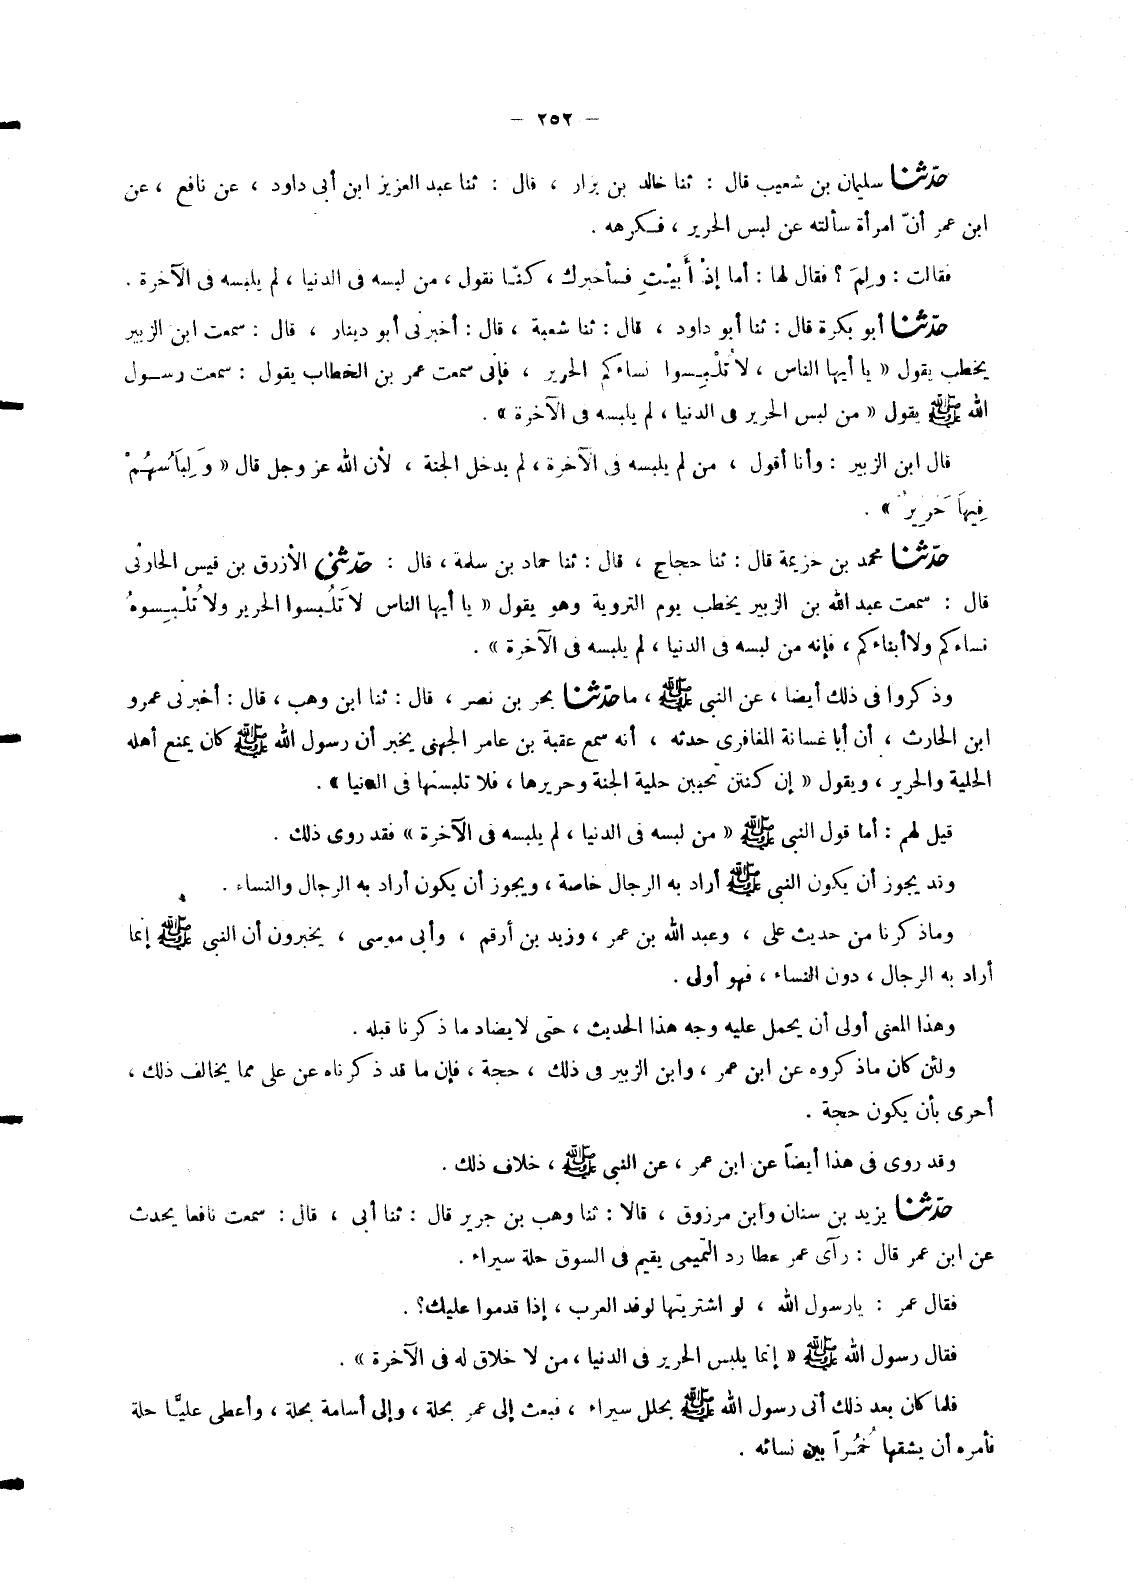 — ٢٥٢ —
حدّثنا سليمان بن شعيب قال : ثنا خالد بن نزار ، قال : ثنا عبد العزيز ابن أبى داود ، عن نافع ، عن
ابن عمر أنّ امرأة سألته عن لبس الحرير ، فكرهه .
فقالت : ولِمَ ؟ فقال لها : أما إذْ أَبيْتِ فسأخبرك ، كنّا نقول ، من لبسه فى الدنيا ، لم يلبسه فى الآخرة .
حدّثنا أبو بكرة قال : ثنا أبو داود ، قال : ثنا شعبة ، قال : أخبرنى أبو دينار ، قال : سمعت ابن الزبير
يخطب يقول « يا أيها الناس ، لا تُلْبِسوا نساءكم الحرير ، فإنى سمعت عمر بن الخطاب يقول : سمعت رسول
الله ﷺ يقول « من لبس الحرير فى الدنيا ، لم يلبسه فى الآخرة » .
قال ابن الزبير : وأنا أقول ، من لم يلبسه فى الآخرة ، لم يدخل الجنة ، لأن الله عز وجل قال « وَلِبَاسُهُمْ
فِيهَا حَرِيرٌ » .
حدّثنا محمد بن خزيمة قال : ثنا حجاج ، قال : ثنا حماد بن سلمة ، قال : حدّثنى الأزرق بن قيس الحارثى
قال : سمعت عبد الله بن الزبير يخطب يوم التروية وهو يقول « يا أيها الناس لا تَلبسوا الحرير ولا تُلْبِسوهُ
نساءكم ولا أبناءكم ، فإنه من لبسه فى الدنيا ، لم يلبسه فى الآخرة » .
وذكروا فى ذلك أيضا ، عن النبى ﷺ ، ما حدّثنا بحر بن نصر ، قال : ثنا ابن وهب ، قال : أخبرنى عمرو
ابن الحارث ، أن أبا غسانة المغافرى حدثه ، أنه سمع عقبة بن عامر الجهنى يخبر أن رسول الله ﷺ كان يمنع أهله
الحلية والحرير ، ويقول « إن كنتن تحببن حلية الجنة وحريرها ، فلا تلبسنها فى الدنيا » .
قيل لهم : أما قول النبى ﷺ « من لبسه فى الدنيا ، لم يلبسه فى الآخرة » فقد روى ذلك .
وقد يجوز أن يكون النبى ﷺ أراد به الرجال خاصة ، ويجوز أن يكون أراد به الرجال والنساء .
وما ذكرنا من حديث على ، وعبد الله بن عمر ، وزيد بن أرقم ، وأبى موسى ، يخبرون أن النبى ﷺ إنما
أراد به الرجال ، دون النساء ، فهو أولى .
وهذا المعنى أولى أن يحمل عليه وجه هذا الحديث ، حتى لا يضاد ما ذكرنا قبله .
ولئن كان ما ذكروه عن ابن عمر ، وابن الزبير فى ذلك ، حجة ، فإن ما قد ذكرناه عن على مما يخالف ذلك ،
أحرى بأن يكون حجة .
وقد روى فى هذا أيضاً عن ابن عمر ، عن النبى ﷺ ، خلاف ذلك .
حدّثنا يزيد بن سنان وابن مرزوق ، قالا : ثنا وهب بن جرير قال : ثنا أبى ، قال : سمعت نافعا يحدث
عن ابن عمر قال : رآى عمر عطا رد التميمى يقيم فى السوق حلة سيراء .
فقال عمر : يارسول الله ، لو اشتريتها لوفد العرب ، إذا قدموا عليك؟ .
فقال رسول الله ﷺ « إنما يلبس الحرير فى الدنيا ، من لا خلاق له فى الآخرة » .
فلما كان بعد ذلك أتى رسول الله ﷺ بحلل سيراء ، فبعث إلى عمر بحلة ، وإلى أسامة بحلة ، وأعطى عليًّا حلة
فأمره أن يشقها خُمُراً بين نسائه .